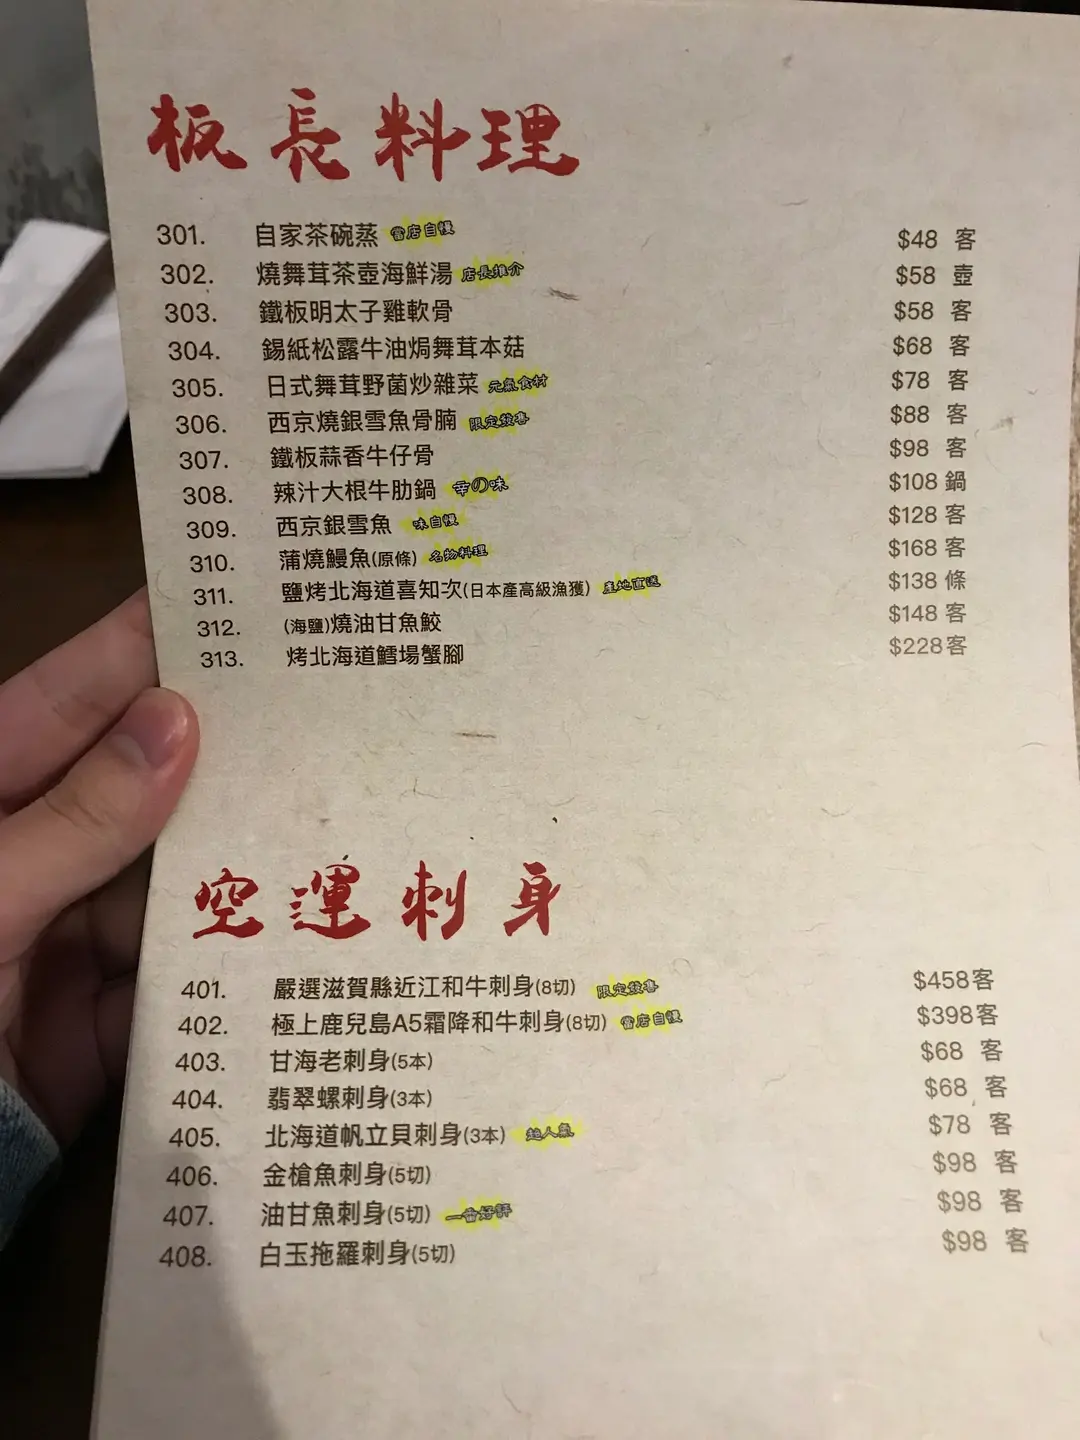 板長料理
301. 自家茶碗蒸 當店自慢 $48 客
302. 燒舞茸茶壺海鮮湯 店長推介 $58 壺
303. 鐵板明太子雞軟骨 $58 客
304. 錫紙松露牛油焗舞茸本菇 $68 客
305. 日式舞茸野菌炒雜菜 元氣食材 $78 客
306. 西京燒銀雪魚骨腩 限定發售 $88 客
307. 鐵板蒜香牛仔骨 $98 客
308. 辣汁大根牛肋鍋 幸の味 $108 鍋
309. 西京銀雪魚 味自慢 $128 客
310. 蒲燒鰻魚(原條) 名物料理 $168 客
311. 鹽烤北海道喜知次(日本產高級漁獲) 產地直送 $138 條
312. (海鹽)燒油甘魚鮫 $148 客
313. 烤北海道鱈場蟹腳 $228客
空運刺身
401. 嚴選滋賀縣近江和牛刺身(8切) 限定發售 $458客
402. 極上鹿兒島A5霜降和牛刺身(8切) 當店自慢 $398客
403. 甘海老刺身(5本) $68 客
404. 翡翠螺刺身(3本) $68 客
405. 北海道帆立貝刺身(3本) 超人氣 $78 客
406. 金槍魚刺身(5切) $98 客
407. 油甘魚刺身(5切) 一番好評 $98 客
408. 白玉拖羅刺身(5切) $98 客